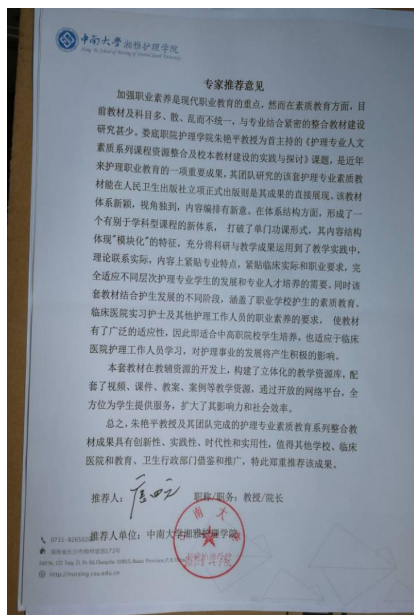 中南大学湘雅护理学院
Xiang Ya School of Nursing of Central South University
专家推荐意见
加强职业素养是现代职业教育的重点，然而在素质教育方面，目
前教材及科目多、散、乱而不统一，与专业结合紧密的整合教材建设
研究甚少。娄底职院护理学院朱艳平教授为首主持的《护理专业人文
素质系列课程资源整合及校本教材建设的实践与探讨》课题，是近年
来护理职业教育的一项重要成果，其团队研究的该套护理专业素质教
材能在人民卫生出版社立项正式出版则是其成果的直接展现。该教材
体系新颖，视角独到，内容编排有新意。在体系结构方面，形成了一
个有别于学科型课程的新体系， 打破了单门功课形式，其内容结构
体现"模块化"的特征，充分将科研与教学成果运用到了教学实践中，
理论联系实际，内容上紧贴专业特点，紧贴临床实际和职业要求，完
全适应不同层次护理专业学生的发展和专业人才培养的需要。同时该
套教材结合护生发展的不同阶段，涵盖了职业学校护生的素质教育。
临床医院实习护士及其他护理工作人员的职业素养的要求， 使教材
有了广泛的适应性，因此即适合中高职院校学生培养，也适应于临床
医院护理工作人员学习，对护理事业的发展将产生积极的影响。
本套教材在教辅资源的开发上，构建了立体化的教学资源库，配
套了视频、课件、教案、案例等教学资源，通过开放的网络平台，全
方位为学生提供服务，扩大了其影响力和社会效率。
总之，朱艳平教授及其团队完成的护理专业素质教育系列整合教
材成果具有创新性、实践性、时代性和实用性，值得其他学校、临床
医院和教育、卫生行政部门借鉴和推广，特此郑重推荐该成果。
推荐人： 职称/职务：教授/院长
推荐人单位：中南大学湘雅护理学院
中南大学
湘雅护理学院
湖南省长沙市桐梓坡路172号
http://nursing.csu.edu.cn